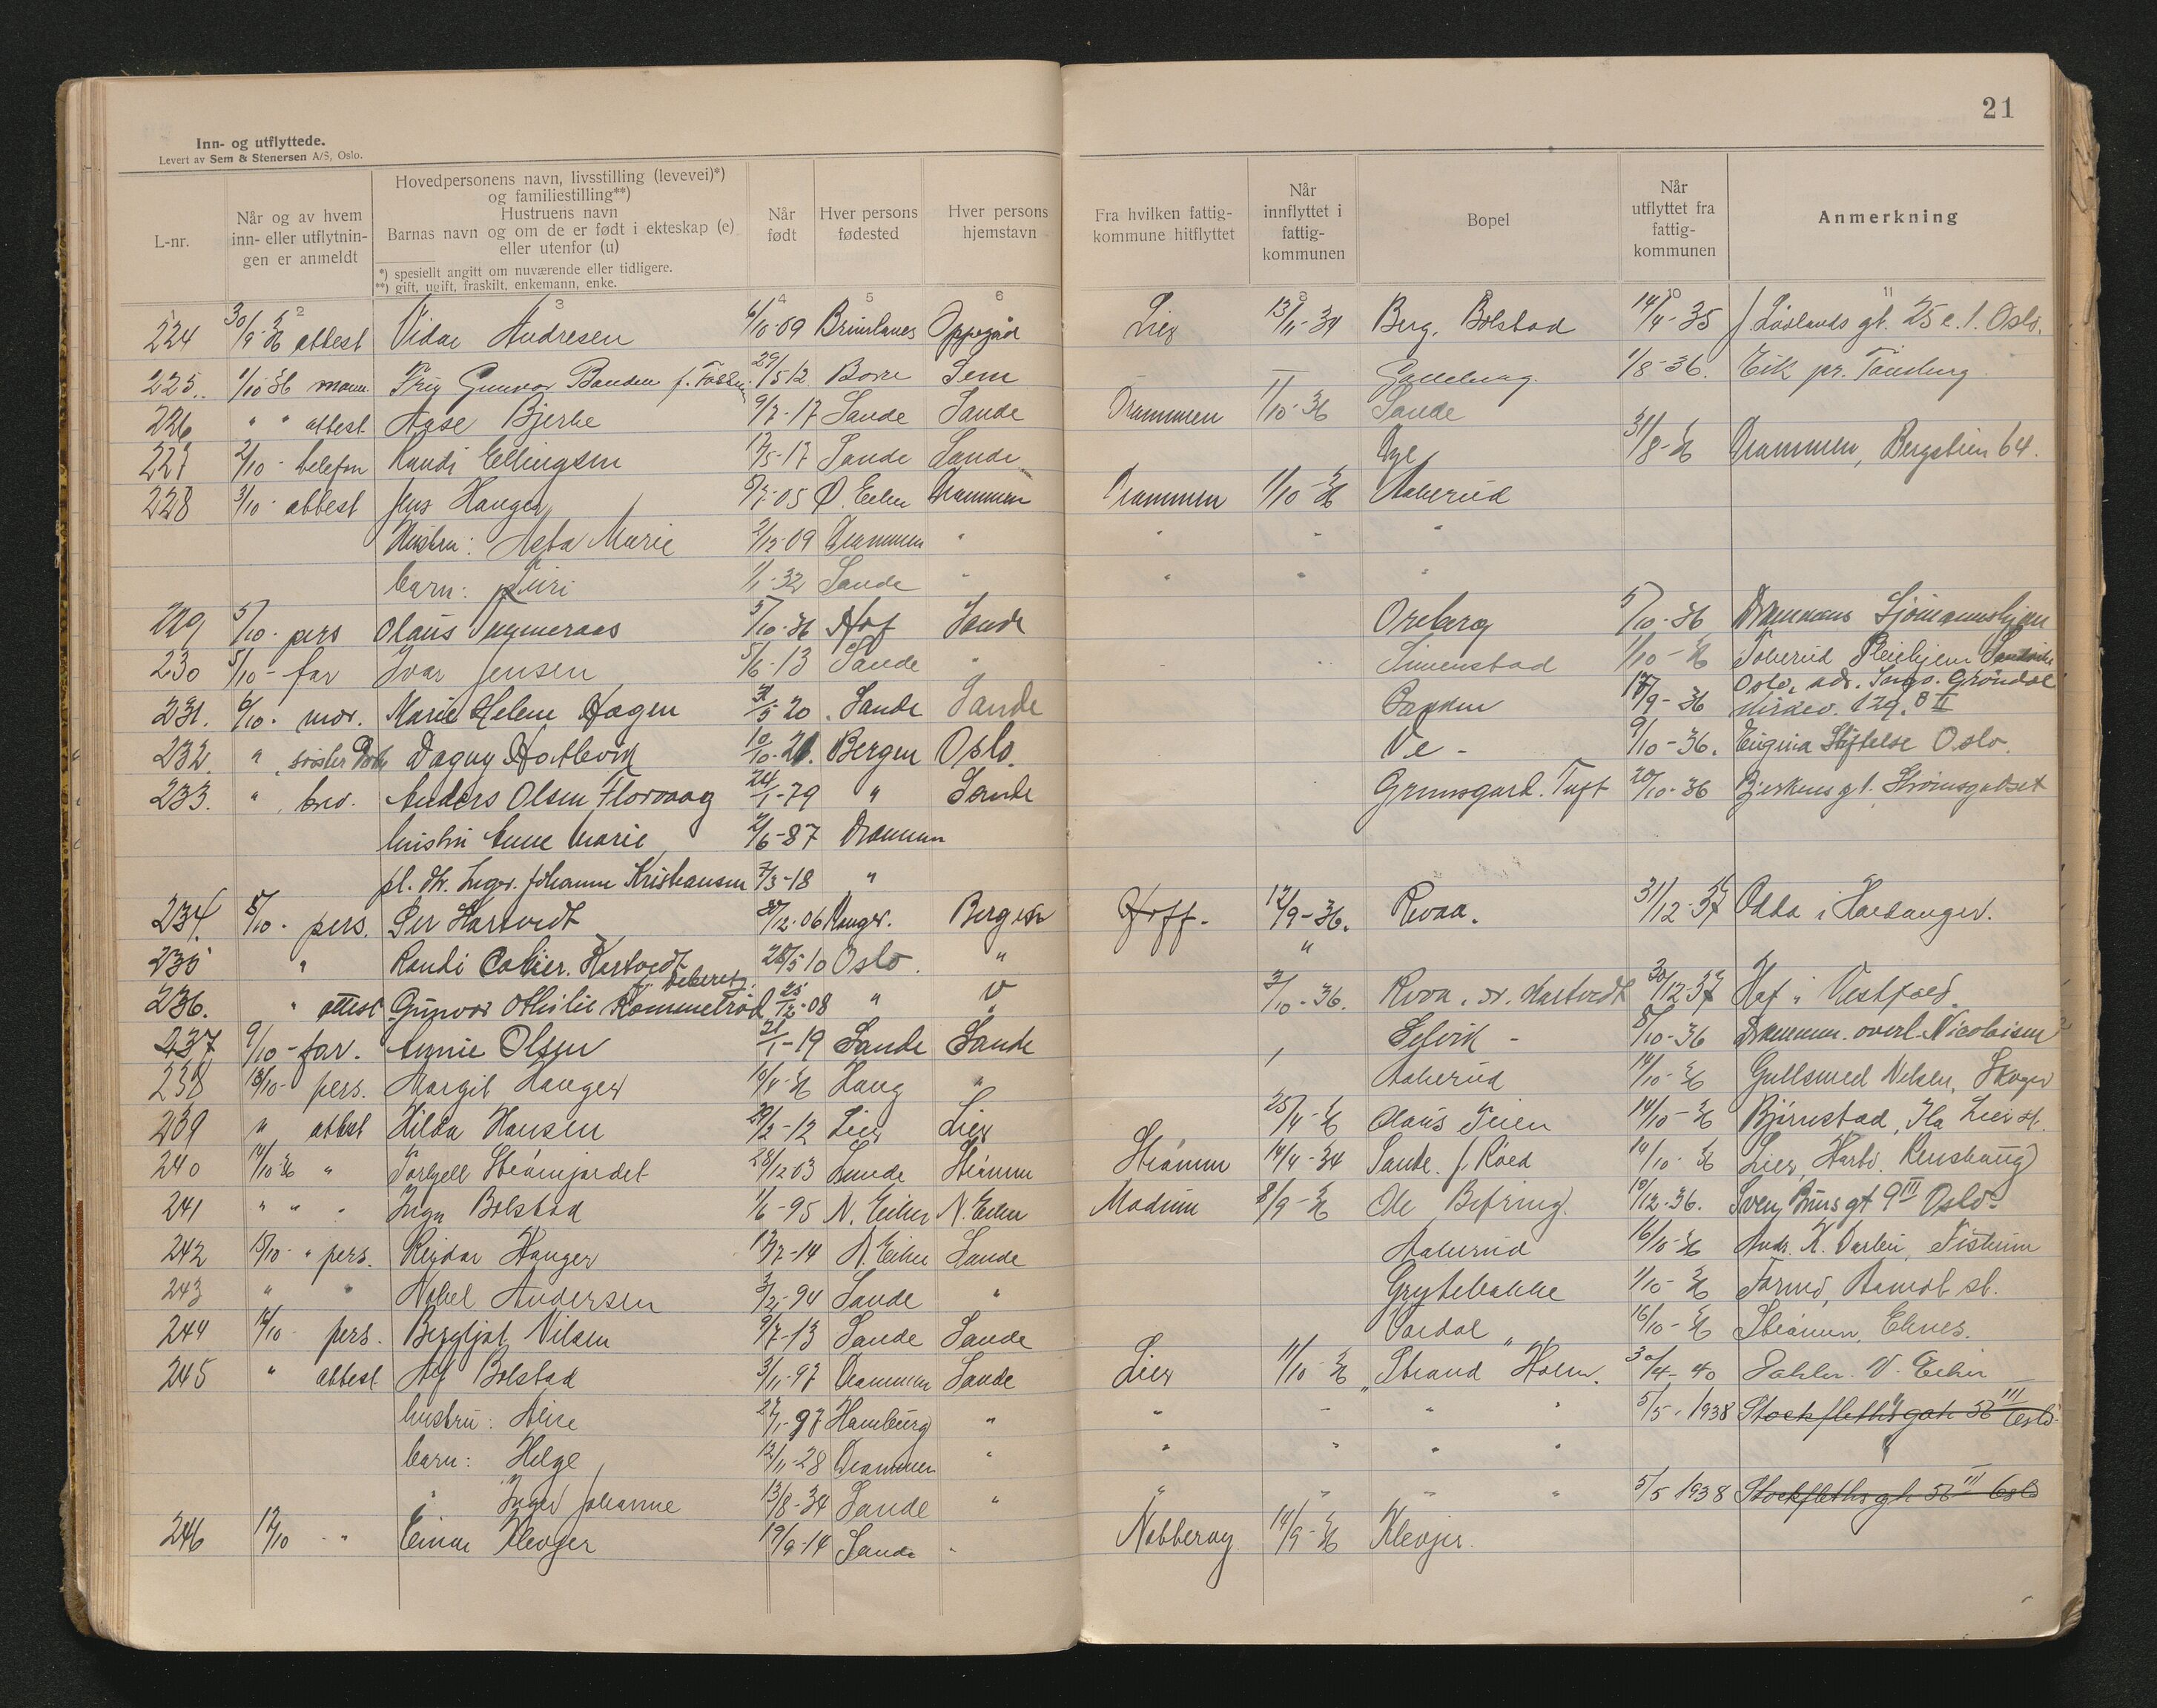 21
Inn- og utflyttede.
Levert av Sem & Stenersen A/S, Oslo.
L-nr.
Når og av hvem inn- eller utflytnin-gen er anmeldt
Hovedpersonens navn, livsstilling (levevei)*) og familiestilling**)
Hustruens navn
Barnas navn og om de er født i ekteskap (e) eller utenfor (u)
*) spesiellt angitt om nuværende eller tidligere.
**) gift, ugift, fraskilt, enkemann, enke.
Når født
Hver persons fødested
Hver persons hjemstavn
Fra hvilken fattig-kommune hitflyttet
Når innflyttet i fattig-kommunen
Bopel
Når utflyttet fra fattig-kommunen
Anmerkning
2 3 4 5 6 8 9 10 11
224 30/9-36 attest Vidar Andresen 6/10-09 Brunlanes Oppegård Lier 13/11-34 Berg, Bolstad 14/4-35 25 Oslo.
225. 1/10-36 mann Gunvor 29/5 12 Borre Sem 1/8-36. Eik pr. Tønsberg
226 " " attest Aase Bjerke 9/7-17 Sande Sande Drammen 1/10-36 Sande
227 2/10- telefon Randi Ellingsen 17/5-17 Sande Sande 31/8-36 Drammen, Bergstien 64.
228 3/10- attest Jens Hanger 9/7-05 Ø. Eiker Drammen Drammen 1/10-36 Aaserud
Hustru: Asta Marie 2/12-09 Drammen " " " "
barn: Turi 1/1-32 Sande " " " "
229 5/10- pers Olaus 5/10-36 Hof Sande Oreberg 5/10-36 Drammens Sjömannshjem
230 5/10- far Ivar Jensen 5/6-13 Sande " Simenstad 1/10-36
231. 6/10- mor. Marie Helene Hagen 5-20. Sande Sande 17/9-36 Oslo, adr. Grøndal 129.
232. " Dagny 10/10-21. Bergen Oslo. Ve - 9/10-36. Eugenia Stiftelse Oslo.
233. " brev. Anders Olsen Florvaag 24/1-79 " Sande Grunsgard. Tuft 20/10-36 Strömsgodset
hustru Anne Marie 2/6-87 Drammen
pl. dtr. Inger Johanne Kristiansen 7/3-18 "
234. 5/10- pers. Per Hartvedt 12-06 Bergen Hoff- 12/9-36. Revaa. 31/12-37 Odda i Hardanger.
235 " Randi Hartvedt 28/5 10 Oslo. " "
236. " attest Gunvor Othilie 25/12-08 " " 3/10-36. Hartvedt 30/12-37 Hof i Vestfold.
237 9/10- far. Annie Olsen 21/1-19 Sande Sande Selvik - 8/10-36 Drammen. overl. Nicolaisen
238 13/10- pers. Margit Hanger Haug " Aaserud 14/10-36 Gullsmed Nilsen, Skoger
239 " attest Hilda Hansen 29/2-12 Lier Lier 25/4-36 Olaus Teien 14/10-36 Björnstad, Lier st.
240 14/10-36 " Torkjell Strömjordet 28/12 03 Sande Strömm Strömm 14/4-34 Sande. f. Röed 14/10-36 Lier,
241 " " " Inga Bolstad 1/6-95 N. Eiker N. Eiker Modum 8/9-36 Ole Befring. 12-36. gt 9 III Oslo.
242 15/10- " pers. Reidar Hanger 7-14 N. Eiker Sande Aaserud 16/10-36 Andr. K. Darbu, Fiskum
243 " " Nobel Andersen 94 Sande " Grytebakke 1/10-36 Aamot st.
244 16/10- pers. Bergljot Nilsen 9/7-13 Sande Sande 16/10-36 Strömm,
245 " attest Alf Bolstad 3/11-97 Drammen Sande Lier 11/10-36 "Strand" Holm. 30/4-40 Eiker
hustru: Alise 27/1-97 Hamburg " " " " " 5/5-1938 Stockfleths gate 56 III Oslo
barn: Helge 12/11-28 Drammen " " " " "
" Inger Johanne 13/8-34 Sande " " " " " 5/5 1938 Stockfleths gt 56 III Oslo
246 17/10 - " Einar Klevjer 19/9-14 Sande " Nøtterøy 14/9-36 Klevjer.